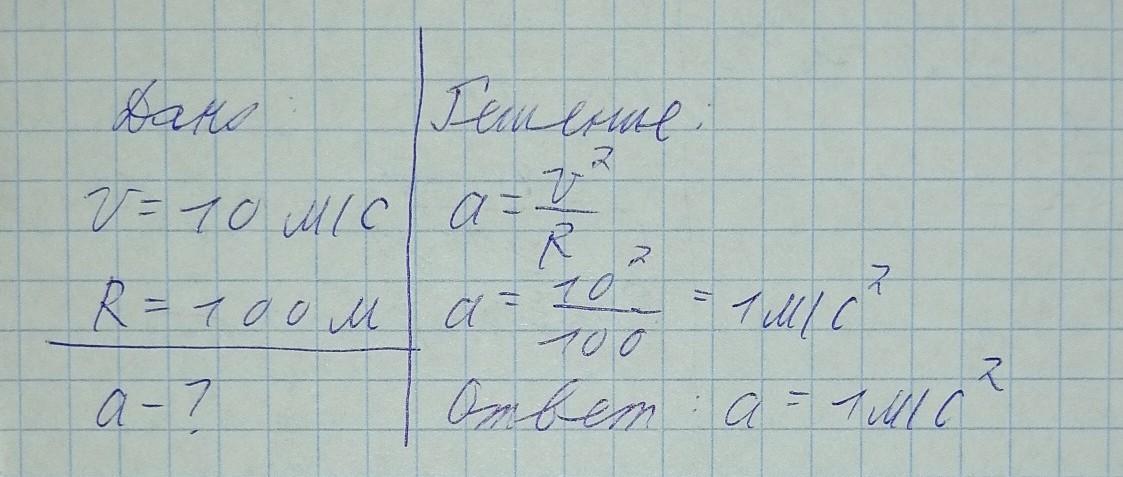 Дано:
v = 10 м/с
R = 100 м
a - ?
Решение:
a = v²/R
a = 10²/100 = 1 м/с²
Ответ: a = 1 м/с²